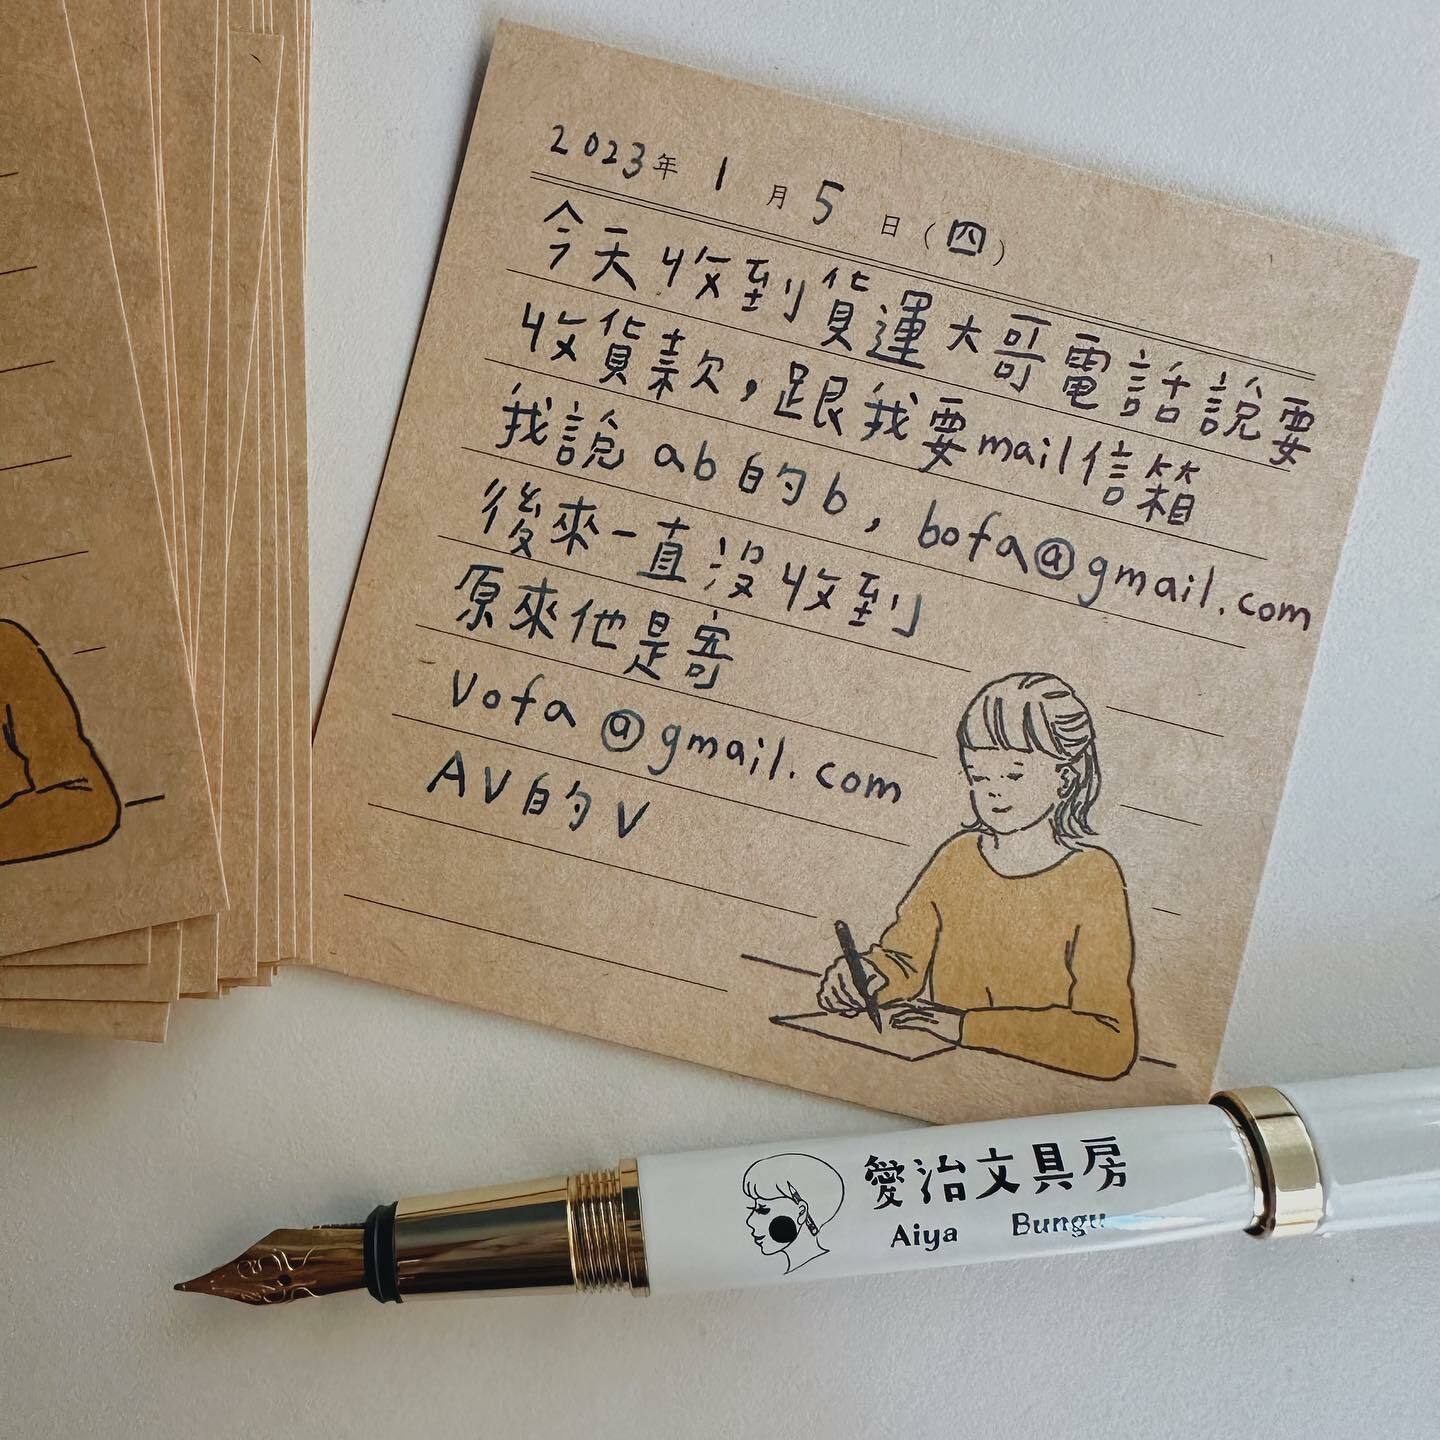 2023年 1 月 5 日（四）
今天收到貨運大哥電話說要
收貨款，跟我要mail信箱
我說 ab 的 b，bofa@gmail.com
後來一直沒收到
原來他是寄
vofa@gmail.com
AV的V
愛治文具房
Aiya Bungu